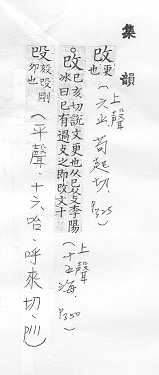 集韻
改更也（上聲、六止、苟起切、P325）
改己亥切說文更也从攴己李陽
冰曰己有過攴之即改文十（上聲、十五海、P350）
㱾㱾剛
卯也（平聲、十六咍、呼來切、P111）